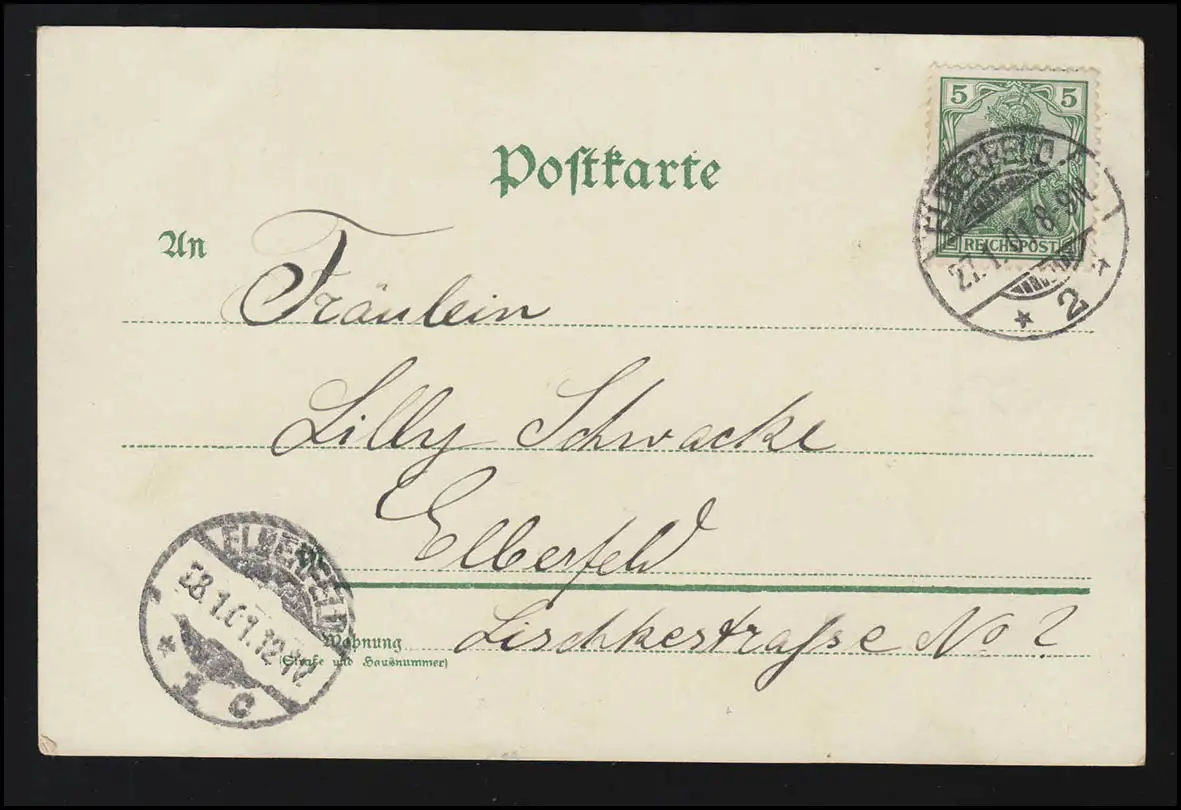 Postkarte
5 5
REICHSPOST
ELBERFELD
27.1.01.8-9N
* 2 *
An
Fräulein
Lilly Schwacke
Elberfeld
Lischkestraße No ?
Wohnung
(Straße und Hausnummer)
ELBERFELD
28.1.01.12
* 1 c